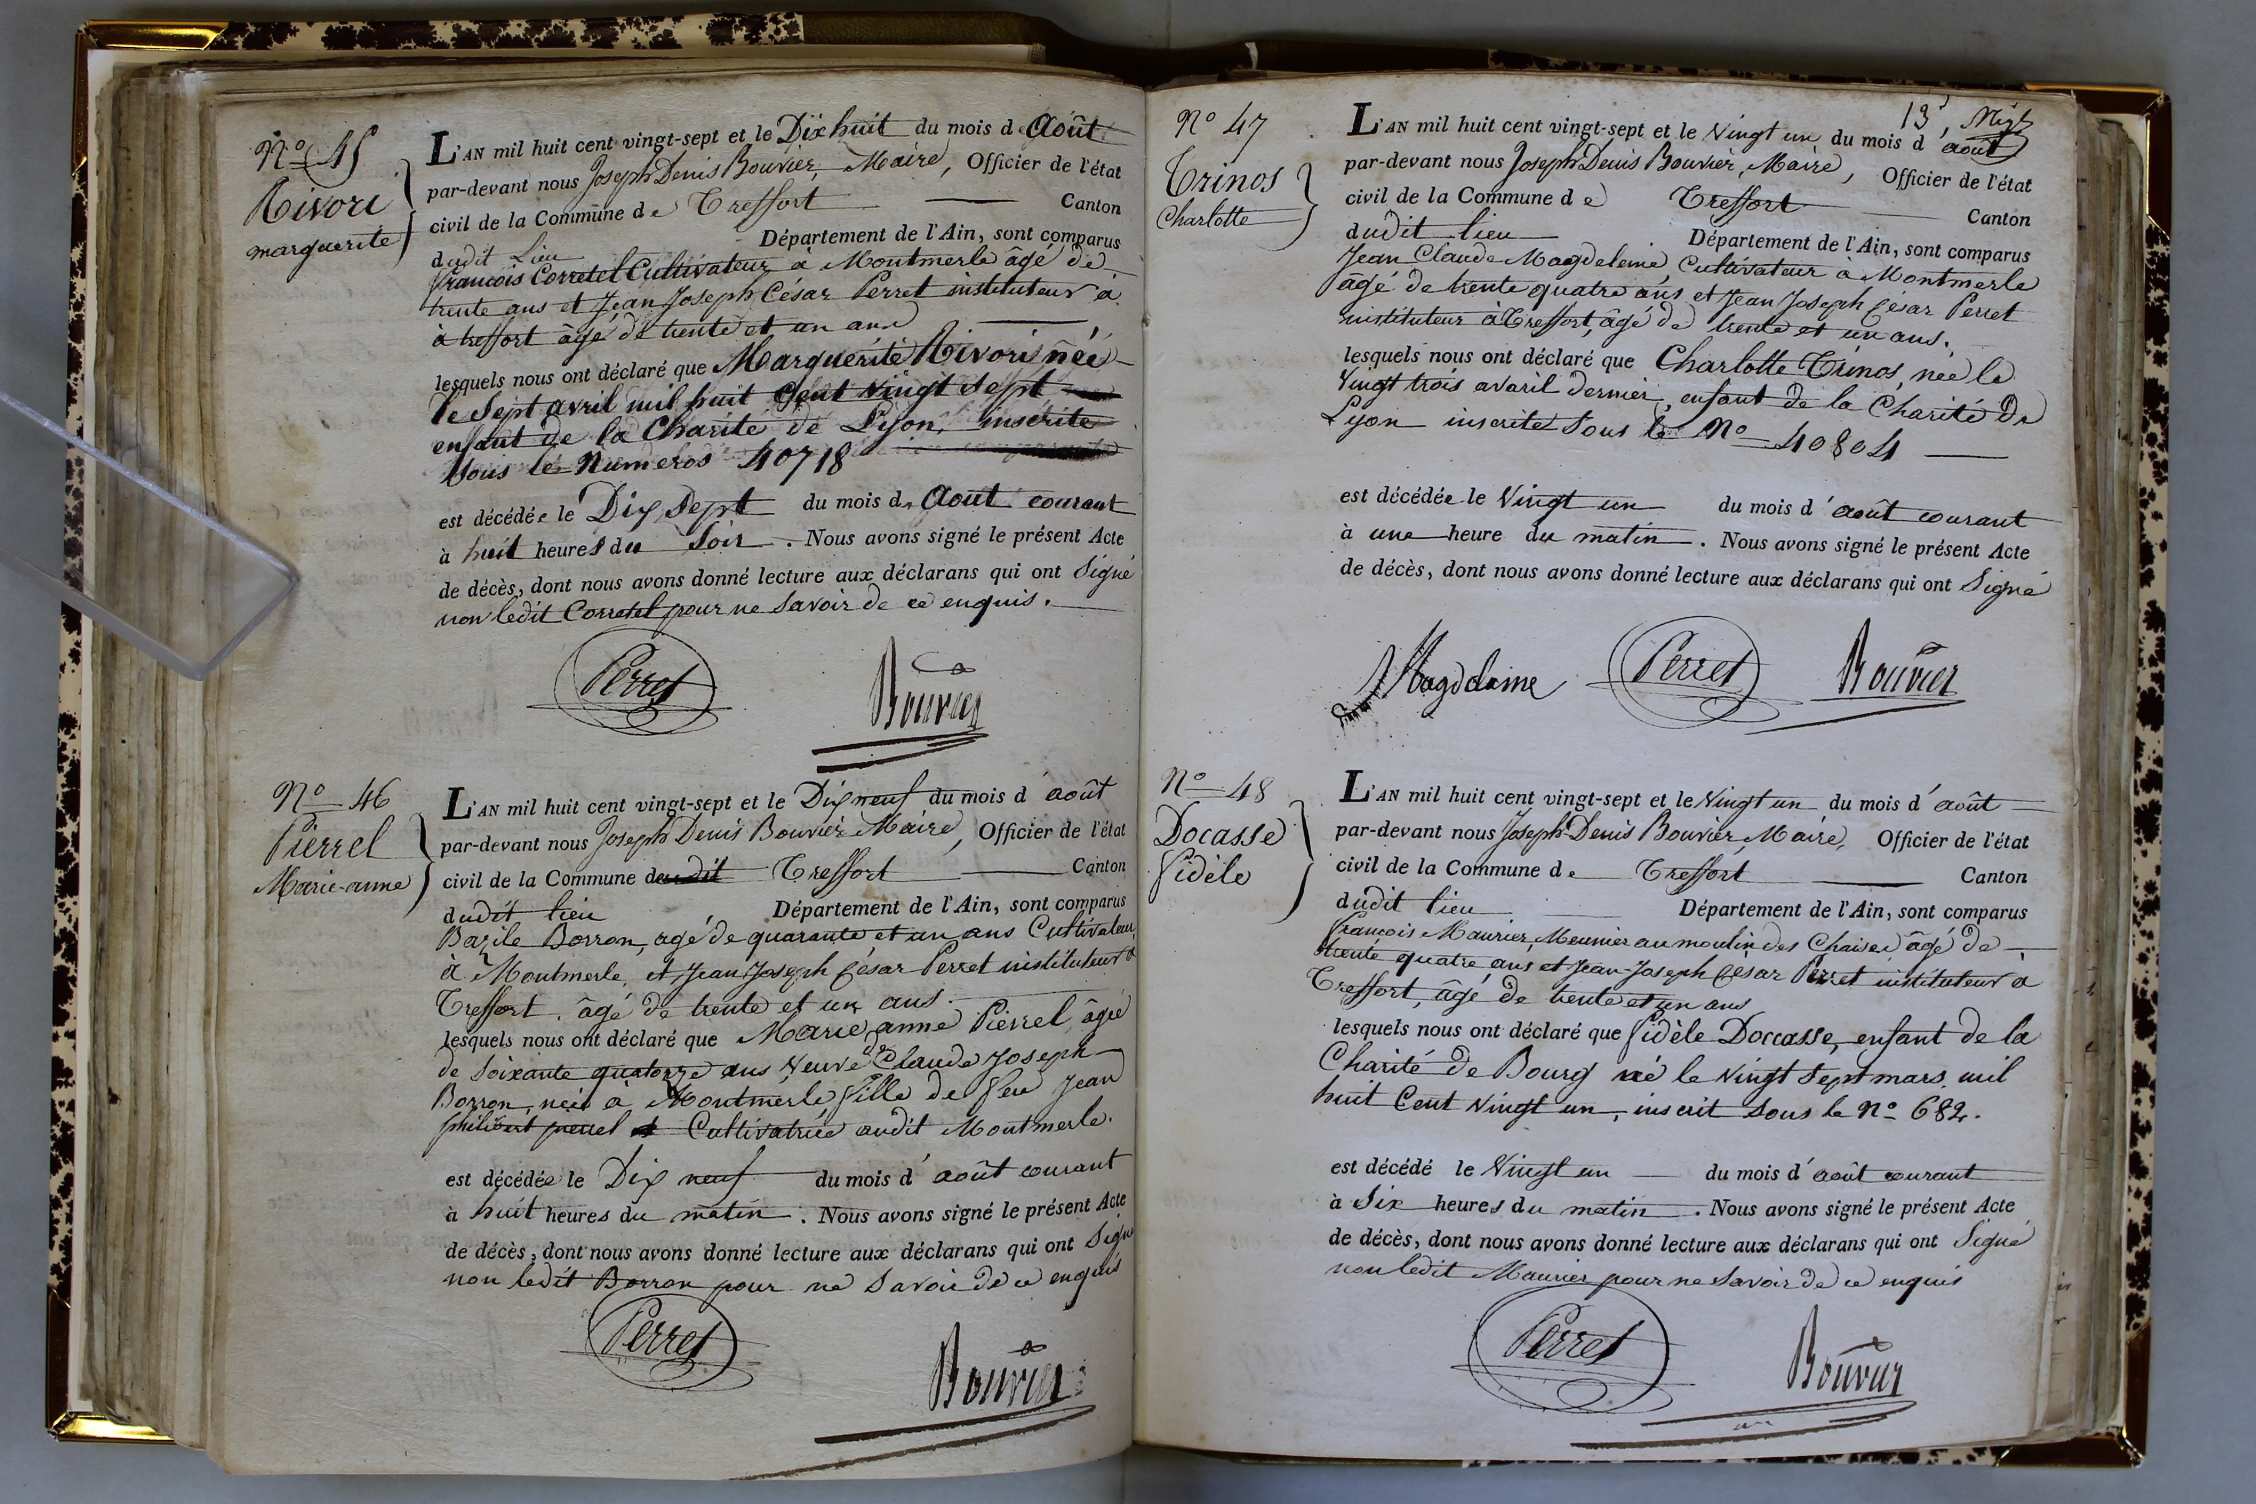 No 45
Rivori
marguerite
L'AN mil huit cent vingt-sept et le Dix huit du mois d'Août
par-devant nous Joseph Denis Bouvier, Maire, Officier de l'état
civil de la Commune de Treffort Canton
dudit Lieu Département de l'Ain, sont comparus
francois Corretel Cultivateur à Montmerle âgé de
trente ans et Jean Joseph César Perret instituteur à
à treffort âgé de trente et un ans
lesquels nous ont déclaré que Marguérite Rivori née
le Sept avril mil huit Cent vingt sept
enfant de la Charité de Lyon, inscrite
sous le Numeros 40718
est décédée le Dix Sept du mois d'Août courant
à huit heures du Soir. Nous avons signé le présent Acte
de décès, dont nous avons donné lecture aux déclarans qui ont Signé
non ledit Corretel pour ne Savoir de ce enquis.
Perret
Bouvier
No 46
Pierrel
Marie-anne
L'AN mil huit cent vingt-sept et le Dix neuf du mois d'août
par-devant nous Joseph Denis Bouvier Maire, Officier de l'état
civil de la Commune dudit Treffort Canton
dudit lieu Département de l'Ain, sont comparus
Bazile Borron, agé de quarante et un ans Cultivateur
à Montmerle, et Jean Joseph César Perret instituteur à
Treffort, âgé de trente et un ans.
lesquels nous ont déclaré que Marie anne Pierrel, âgée
de Soixante quatorze ans Veuve de Claude Joseph
Borron, née à Montmerle fille de feu Jean
philibert pierrel Cultivatrice audit Montmerle.
est décédée le Dix neuf du mois d'août courant
à huit heures du matin. Nous avons signé le présent Acte
de décès, dont nous avons donné lecture aux déclarans qui ont Signé
non ledit Borron pour ne Savoir de ce enquis
Perret
Bouvier
13
No 47
Trinos
Charlotte
L'AN mil huit cent vingt-sept et le Vingt un du mois d'août
par-devant nous Joseph Denis Bouvier, Maire, Officier de l'état
civil de la Commune de Treffort Canton
dudit lieu Département de l'Ain, sont comparus
Jean Claude Magdeleine, Cultivateur à Montmerle
âgé de trente quatre ans et Jean Joseph César Perret
instituteur à Treffort, âgé de trente et un ans.
lesquels nous ont déclaré que Charlotte Trinos, née le
Vingt trois avaril dernier, enfant de la Charité De
Lyon inscrite sous le No 40804
est décédée le Vingt un du mois d'août courant
à une heure du matin. Nous avons signé le présent Acte
de décès, dont nous avons donné lecture aux déclarans qui ont Signé
Magdelaine Perret Bouvier
No 48
Docasse
Fidèle
L'AN mil huit cent vingt-sept et le Vingt un du mois d'août
par-devant nous Joseph Denis Bouvier, Maire, Officier de l'état
civil de la Commune de Treffort Canton
dudit lieu Département de l'Ain, sont comparus
francois Maurier, Meunier au moulin des Chaises âgé de
trente quatre ans et Jean-Joseph César Perret instituteur à
Treffort, âgé de trente et un ans
lesquels nous ont déclaré que Fidèle Doccasse, enfant de la
Charité de Bourg né le Vingt Sept mars, mil
huit Cent Vingt un, inscrit sous le No 682.
est décédé le Vingt un du mois d'août courant
à Six heures du matin. Nous avons signé le présent Acte
de décès, dont nous avons donné lecture aux déclarans qui ont Signé
non ledit Maurier pour ne Savoir de ce enquis
Perret
Bouvier